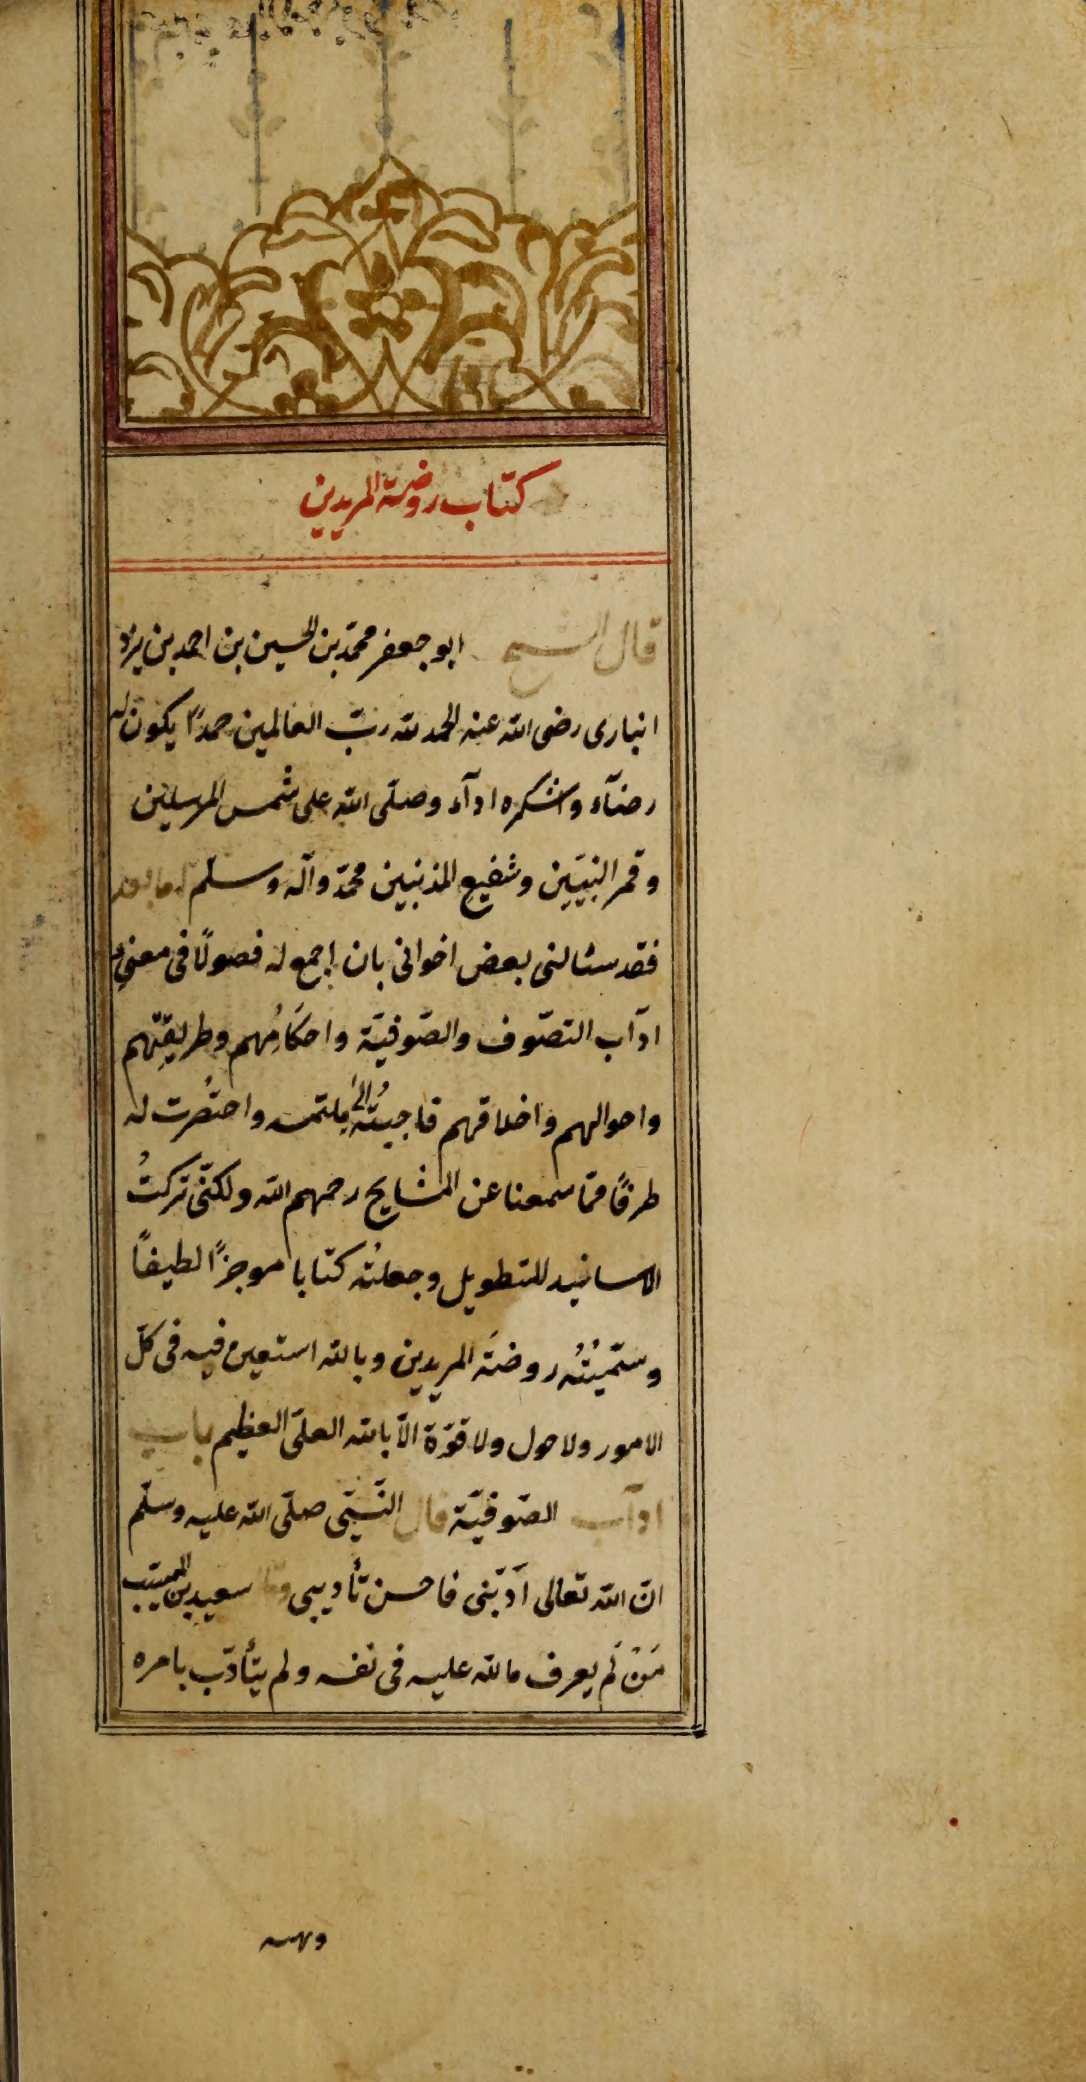 كتاب روضة المريدين
قال الشيخ ابو جعفر محمّد بن الحسين بن احمد بن يزد
انبارى رضى الله عنه الحمد لله ربّ العالمين حمدًا يكون له
رضآء واشكره ادآء وصلّى الله على شمس المرسلين
وقمر النبيّين وشفيع المذنبين محمّد وآله وسلّم اما بعد
فقد سئالنى بعض اخوانى بان اجمع له فصولًا فى معنى
ادآب التصّوف والصّوفيّة واحكامُهم وطريقِتهم
واحوالهم واخلاقهم فاجبتُه الى ملتمسه واختصُرت له
طرفًا ممّا سمعنا عن المشايخ رحمهم الله ولكنّى تركتُ
الاسانيد للتطويل وجعلتُه كتابا موجزًا لطيفًا
وسمّيْتُه روضَة المريدين وبالله استعين فيه فى كلّ
الامور ولا حول ولا قوّة الّا بالله العلىّ العظيم باب
ادآب الصّوفيّة قال النّبىّ صلّى الله عليه وسلّم
انّ الله تعالى اَدّبنى فاحسن تأديبى وقال سعيد بن المسيّب
مَنْ لَم يعرف ما لله عليه فى نفسه ولم يتأدّب بامره
ونهيه